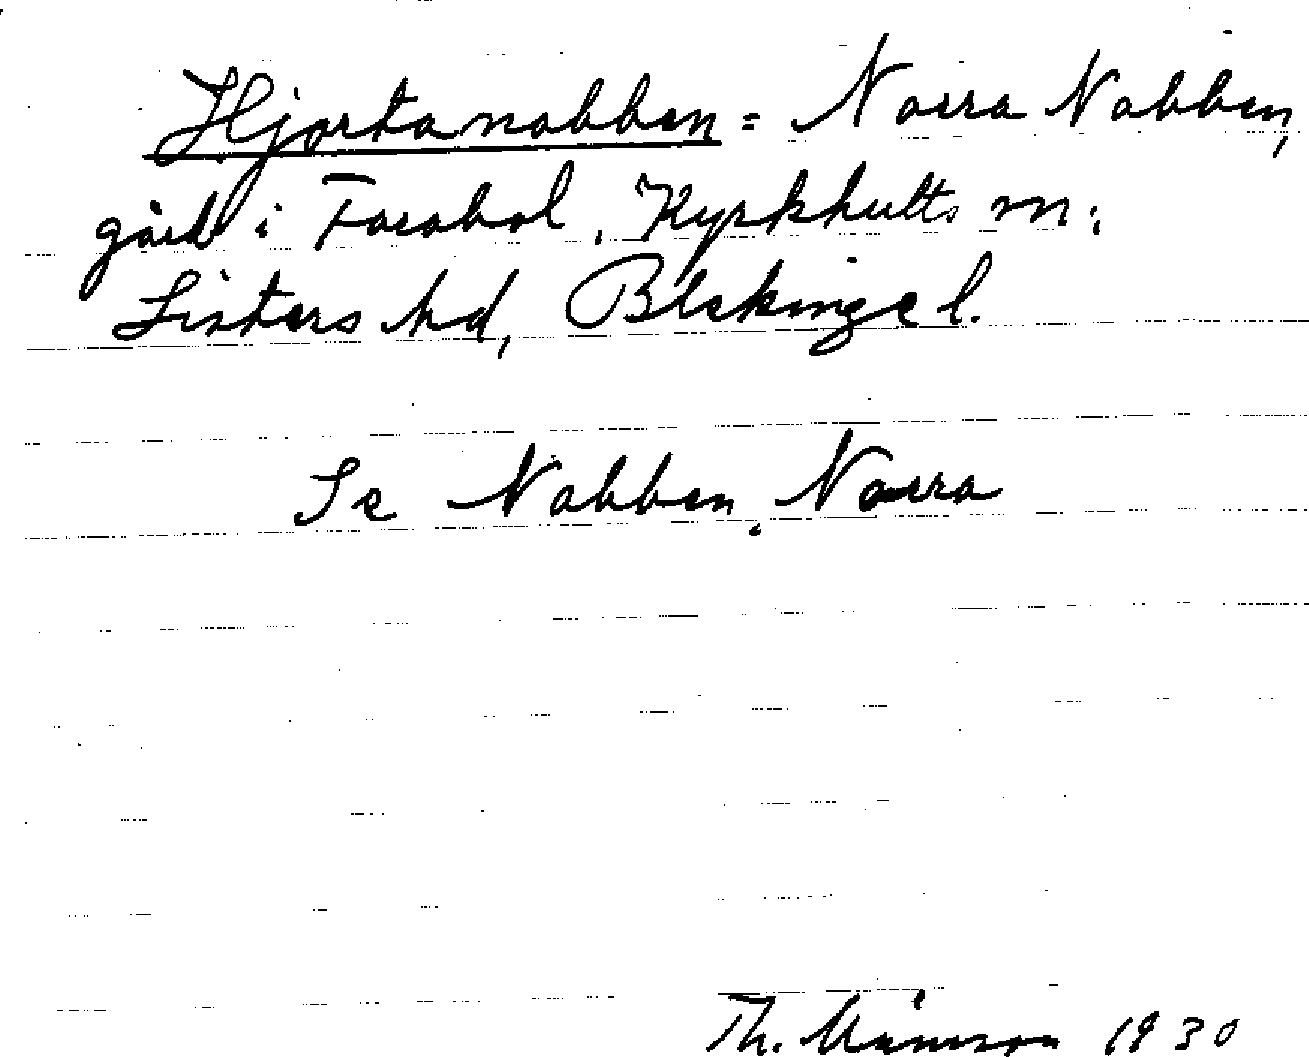 Hjortanabben = Norra Nabben,
gård i Farabol, Kyrkhults sn,
Listers hd, Blekinge l.
Se Nabben, Norra
Th. Månsson 1930